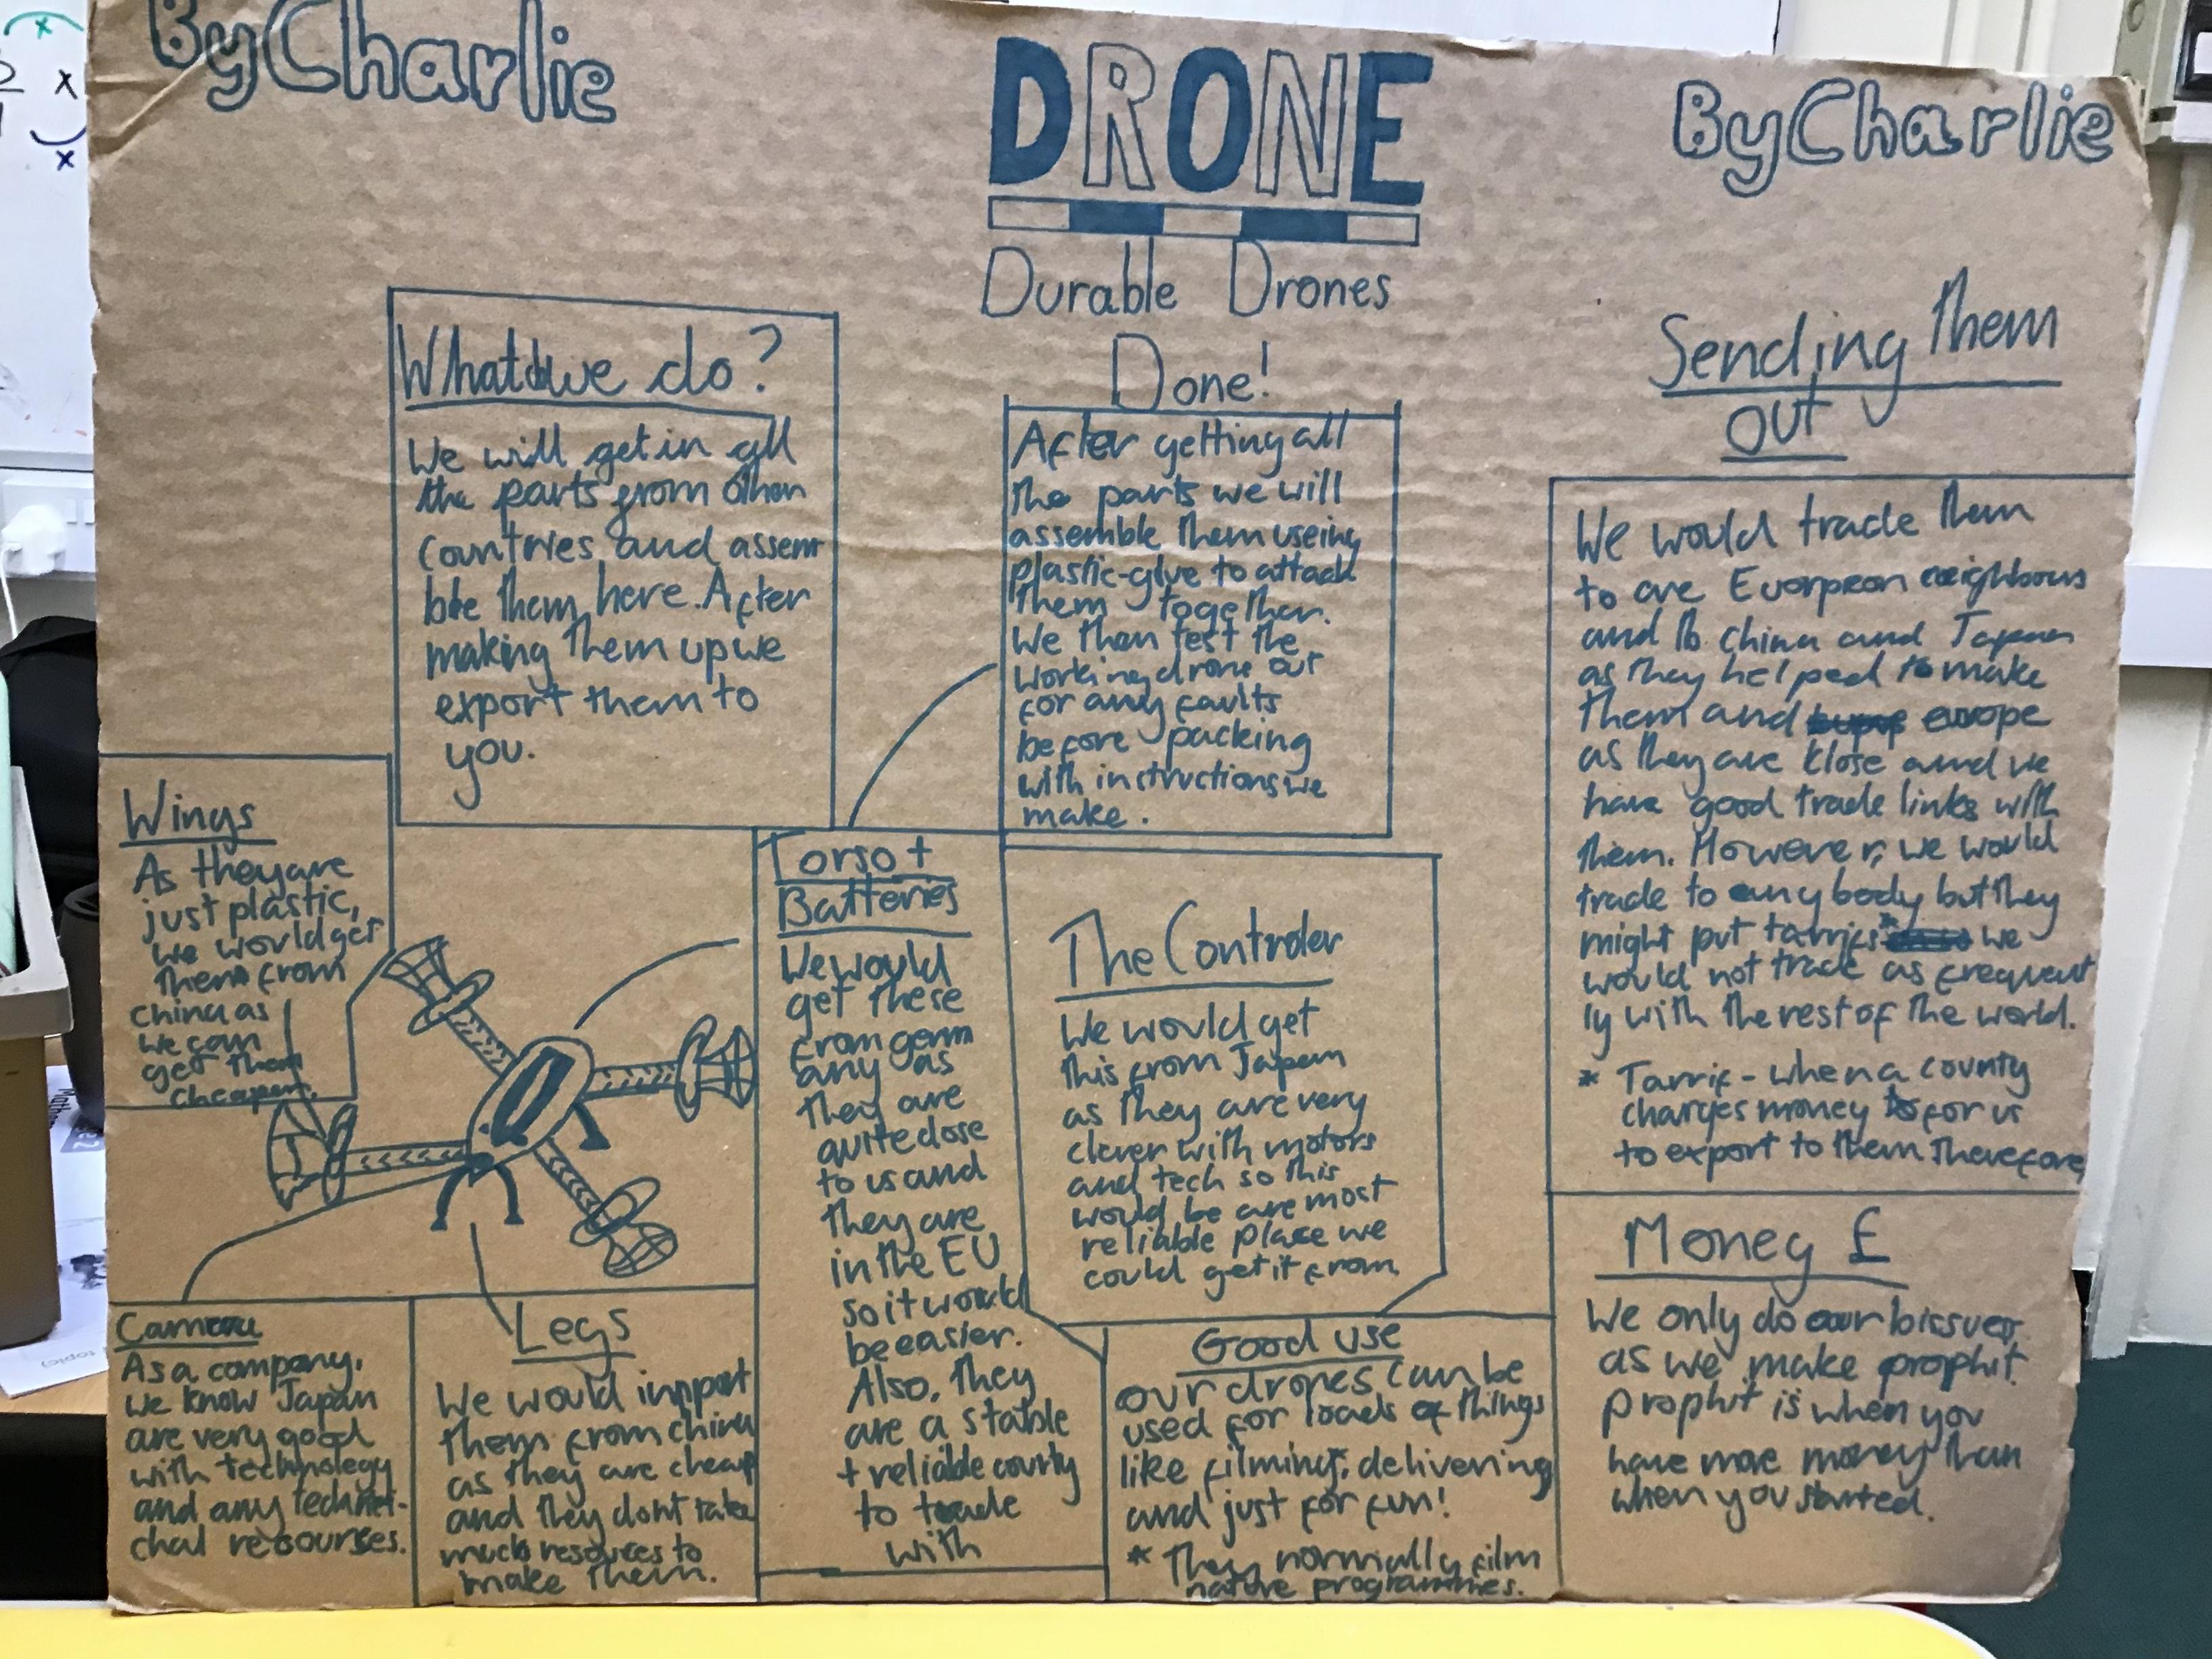 By Charlie
DRONE
By Charlie
Durable Drones
Done!
What do we do?
We will get in all
the parts from other
countries and assem
ble them here. After
making them up we
export them to
you.
After getting all
the parts we will
assemble them useing
plastic-glue to attach
them together.
We then test the
working drone out
for any faults
before packing
with instructions we
make.
Sending them
out
We would trade them
to are Euorpean neighbours
and to China and Japan
as they helped to make
them and europe
as they are klose and we
have good trade links with
them. However, we would
trade to anybody but they
might put tarrifs* we
would not trade as frequent
ly with the rest of the world.
* Tarrif - when a county
charges money for us
to export to them therefore
Wings
As they are
just plastic,
we would get
them from
china as
we can
get them
cheaper.
Torso +
Batteries
We would
get these
from germ
any as
they are
quite close
to us and
they are
in the EU
so it would
be easier.
Also, they
are a stable
+ reliable county
to trade
with
The Controler
We would get
this from Japan
as they are very
clever with motors
and tech so this
would be are most
reliable place we
could get it from
Money £
We only do our
as we make prophit.
prophit is when you
have more money than
when you started.
Camera
As a company,
we know Japan
are very good
with technology
and any
chal resourses.
Legs
We would import
them from china
as they are cheap
and they dont take
much resources to
make them.
Good use
our drones can be
used for loads of things
like filming*, delivering
and just for fun!
* They normally film
nature programmes.